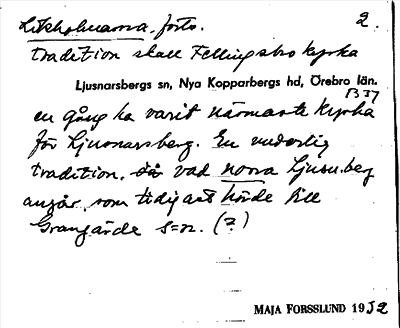 Likholmarna, forts. 2.
tradition skall Fellingsbro kyrka
Ljusnarsbergs sn, Nya Kopparbergs hd, Örebro län.
B 37
en gång ha varit närmaste kyrka
för Ljusnarsberg. En underlig
tradition, då vad norra Ljusn.berg
angår, som tidigast hörde till
Grangärde s=n. (?)
MAJA FORSSLUND 1932